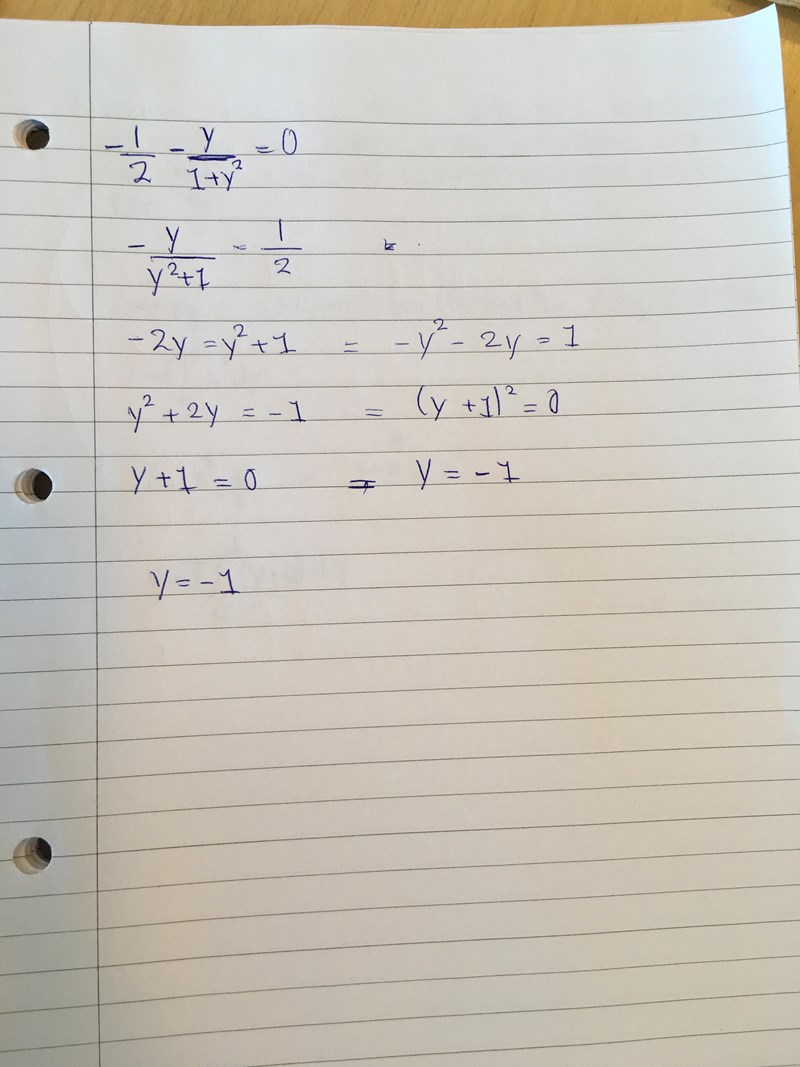 -1/2 - y/(1+y²) = 0
- y/(y²+1) = 1/2
-2y = y²+1 = -y² - 2y = 1
y² + 2y = -1 = (y+1)² = 0
y+1 = 0 = y = -1
y = -1